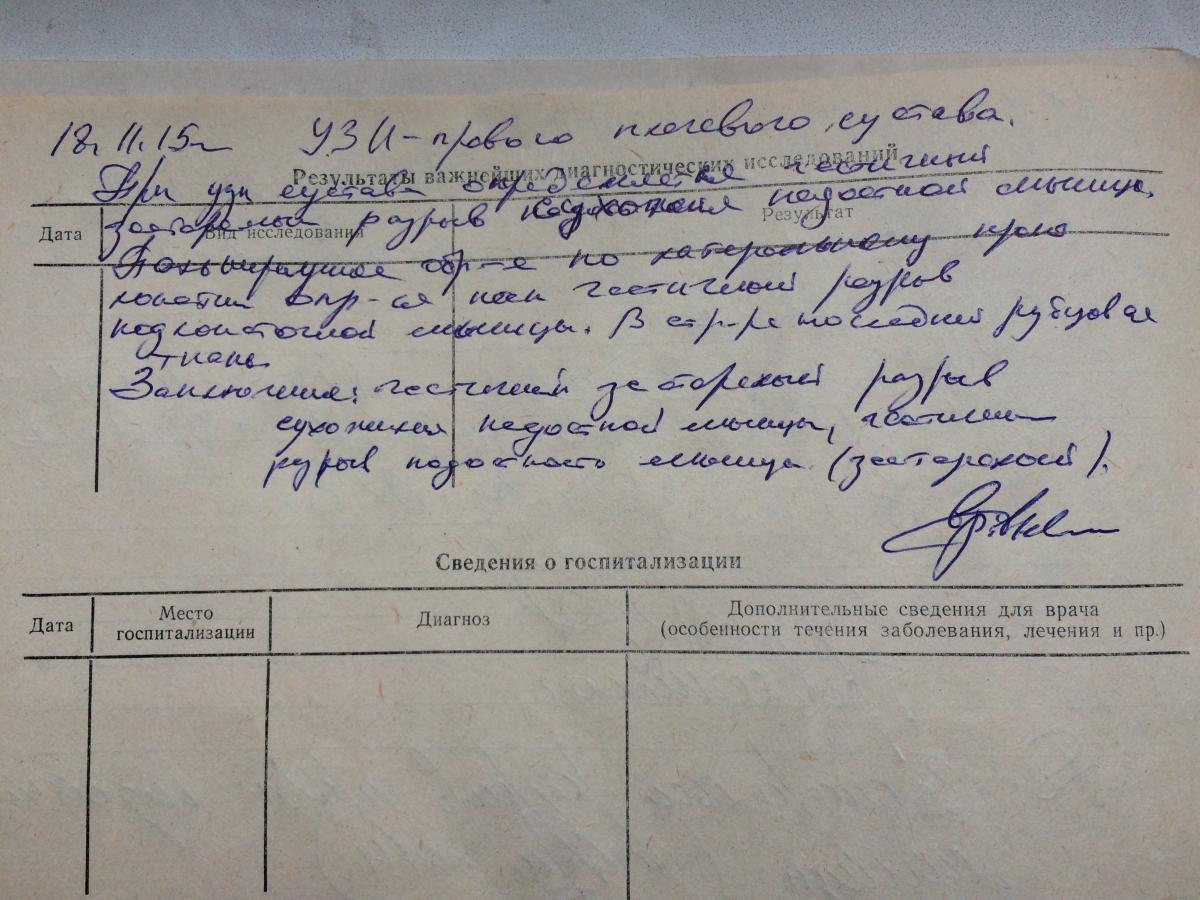 18. 11. 15г УЗИ-правого плечевого сустава.
Результаты важнейших диагностических исследований
При узи сустава определяется частичный
застарелый разрыв сухожилия надостной мышцы.
Дата
Вид исследования
Результат
обр-е по латеральному краю
лопатки опр-ся как частичный разрыв
подлопаточной мышцы. В стр-ре последней рубцовая
ткань
Заключение: частичный застарелый разрыв
сухожилия надостной мышцы, частичный
разрыв мышцы (застарелый).
Сведения о госпитализации
Дата
Место
госпитализации
Диагноз
Дополнительные сведения для врача
(особенности течения заболевания, лечения и пр.)